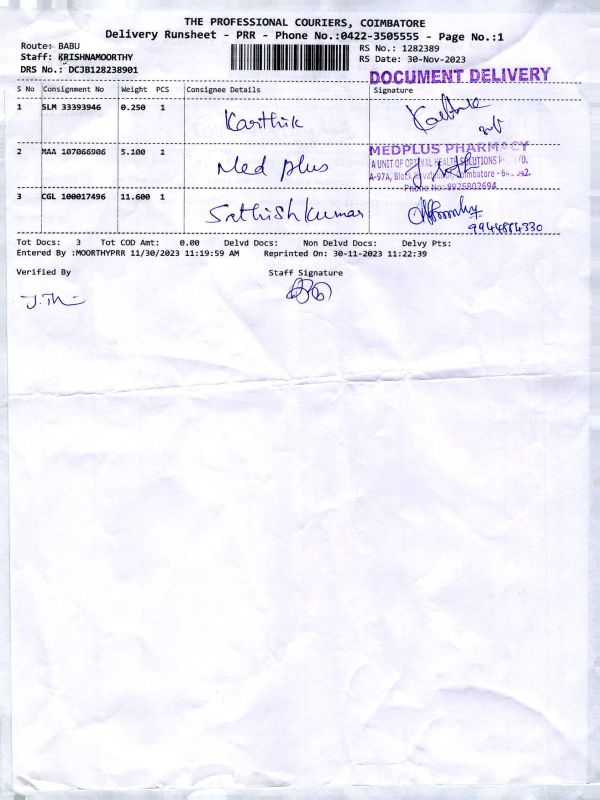 THE PROFESSIONAL COURIERS, COIMBATORE
Delivery Runsheet - PRR - Phone No.:0422-3505555 - Page No.:1
Route: BABU
RS No.: 1282389
Staff: KRISHNAMOORTHY
RS Date: 30-Nov-2023
DRS No.: DCJB128238901
DOCUMENT DELIVERY
S No Consignment No Weight PCS Consignee Details Signature
1 SLM 33393946 0.250 1 Karthik
2 MAA 107066906 5.100 1 Med plus
MEDPLUS PHARMACY
A UNIT OF OPTIVAL HEALTH SOLUTIONS
A-97A, Block Coimbatore -
Phone No: 8925802694
3 CGL 100017496 11.600 1 Sathishkumar
Tot Docs: 3 Tot COD Amt: 0.00 Delvd Docs: Non Delvd Docs: Delvy Pts:
Entered By :MOORTHYPRR 11/30/2023 11:19:59 AM Reprinted On: 30-11-2023 11:22:39
Verified By Staff Signature